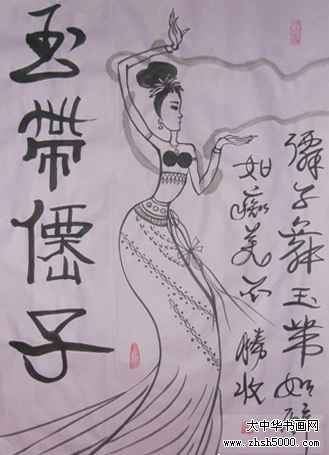 玉帶僊子
子舞玉带如醉
如痴美不勝收
大中华书画网
www.zhsh5000.com